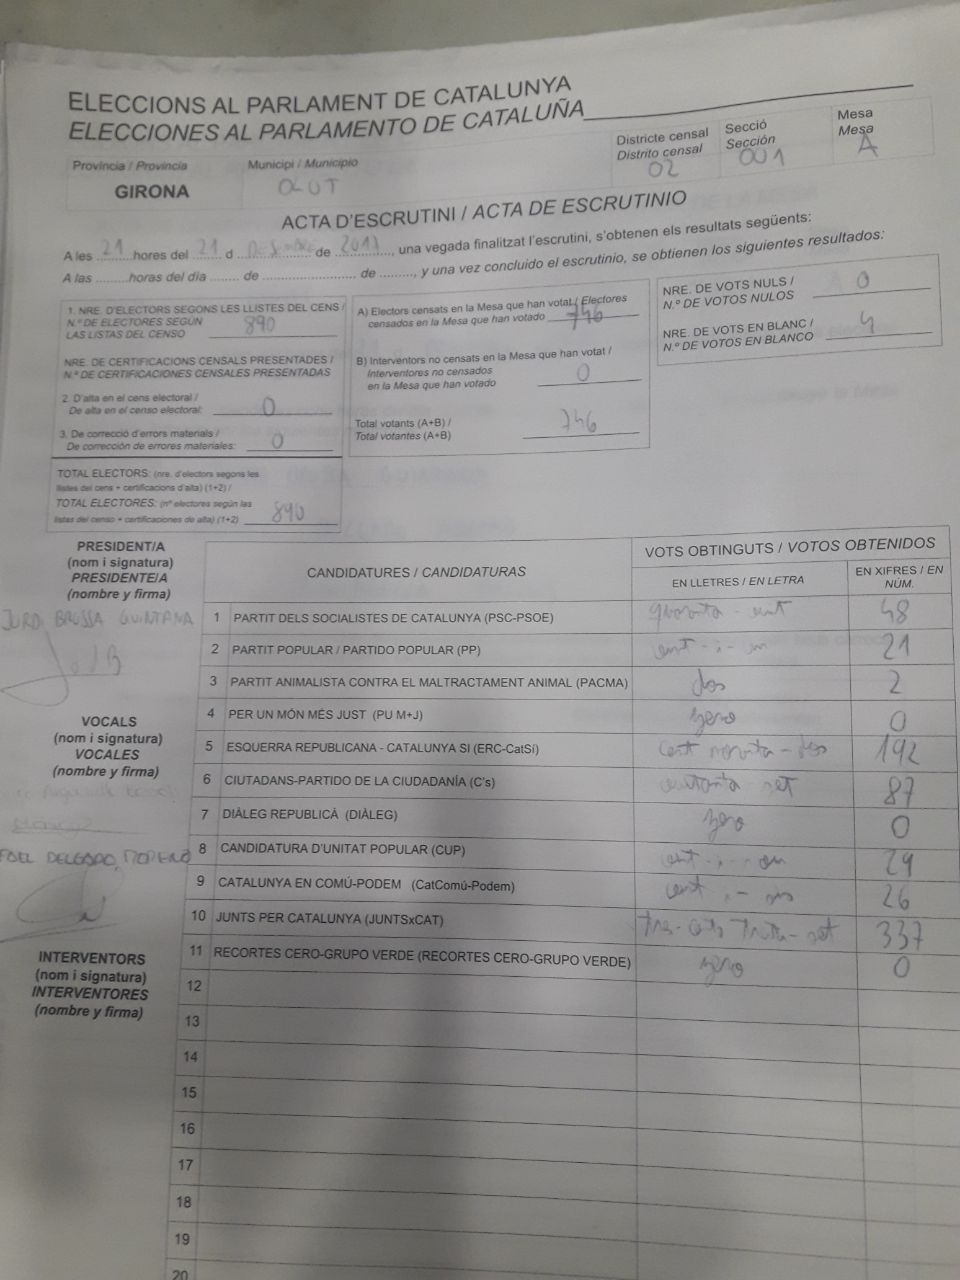 ELECCIONS AL PARLAMENT DE CATALUNYA
ELECCIONES AL PARLAMENTO DE CATALUÑA
Província / Provincia
GIRONA
Municipi / Municipio
OLOT
Districte censal
Distrito censal
02
Secció
Sección
001
Mesa
Mesa
A
ACTA D'ESCRUTINI / ACTA DE ESCRUTINIO
A les 21 hores del 21 d Desembre de 2017, una vegada finalitzat l'escrutini, s'obtenen els resultats següents:
A las ......... horas del día ....... de ........................ de ........., y una vez concluido el escrutinio, se obtienen los siguientes resultados:
1. NRE. D'ELECTORS SEGONS LES LLISTES DEL CENS /
N.º DE ELECTORES SEGÚN
LAS LISTAS DEL CENSO 890
NRE. DE CERTIFICACIONS CENSALS PRESENTADES /
N.º DE CERTIFICACIONES CENSALES PRESENTADAS
2. D'alta en el cens electoral /
De alta en el censo electoral: 0
3. De correcció d'errors materials /
De corrección de errores materiales: 0
TOTAL ELECTORS: (nre. d'electors segons les
llistes del cens + certificacions d'alta) (1+2) /
TOTAL ELECTORES: (nº electores según las
listas del censo + certificaciones de alta) (1+2) 890
A) Electors censats en la Mesa que han votat / Electores
censados en la Mesa que han votado 746
B) Interventors no censats en la Mesa que han votat /
Interventores no censados
en la Mesa que han votado 0
Total votants (A+B) /
Total votantes (A+B) 746
NRE. DE VOTS NULS /
N.º DE VOTOS NULOS 0
NRE. DE VOTS EN BLANC /
N.º DE VOTOS EN BLANCO 4
PRESIDENT/A
(nom i signatura)
PRESIDENTE/A
(nombre y firma)
JORDI BRUSSA QUINTANA
VOCALS
(nom i signatura)
VOCALES
(nombre y firma)
DELGADO MORENO
INTERVENTORS
(nom i signatura)
INTERVENTORES
(nombre y firma)
CANDIDATURES / CANDIDATURAS
VOTS OBTINGUTS / VOTOS OBTENIDOS
EN LLETRES / EN LETRA
EN XIFRES / EN
NÚM.
1 PARTIT DELS SOCIALISTES DE CATALUNYA (PSC-PSOE) quaranta-vuit 48
2 PARTIT POPULAR / PARTIDO POPULAR (PP) vint-i-un 21
3 PARTIT ANIMALISTA CONTRA EL MALTRACTAMENT ANIMAL (PACMA) dos 2
4 PER UN MÓN MÉS JUST (PU M+J) zero 0
5 ESQUERRA REPUBLICANA - CATALUNYA SI (ERC-CatSí) cent noranta-dos 192
6 CIUTADANS-PARTIDO DE LA CIUDADANÍA (C's) vuitanta-set 87
7 DIÀLEG REPUBLICÀ (DIÀLEG) zero 0
8 CANDIDATURA D'UNITAT POPULAR (CUP) vint-i-nou 29
9 CATALUNYA EN COMÚ-PODEM (CatComú-Podem) vint-i-sis 26
10 JUNTS PER CATALUNYA (JUNTSxCAT) tres-cents trenta-set 337
11 RECORTES CERO-GRUPO VERDE (RECORTES CERO-GRUPO VERDE) zero 0
12
13
14
15
16
17
18
19
20